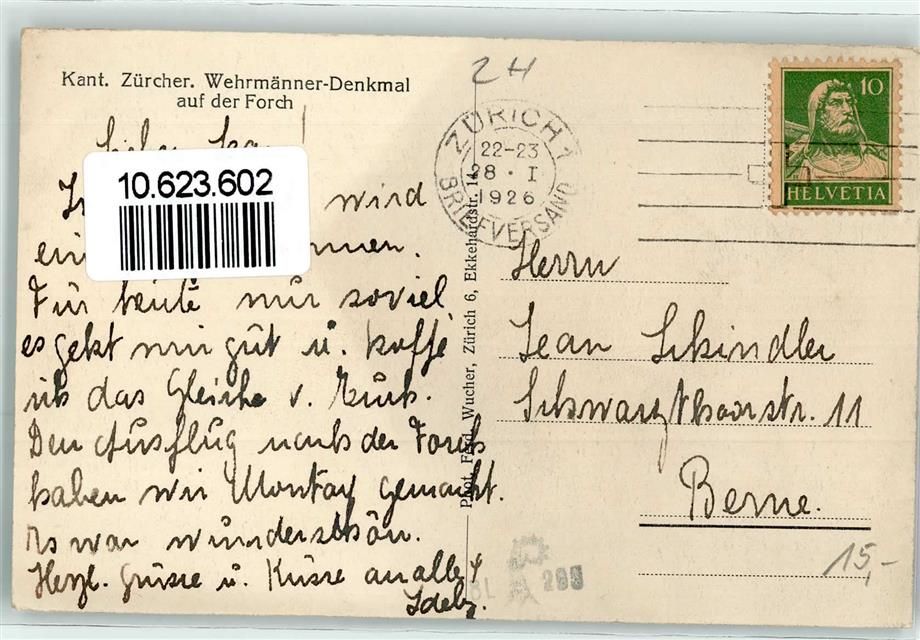 Kant. Zürcher. Wehrmänner-Denkmal
auf der Forch
10.623.602
wird
Für heute nur soviel
es geht mir gut u. hoffe
ich das Gleiche v. Euch.
Den Ausflug nach der Forch
haben wir Montag gemacht.
Es war wunderschön.
Herzl. Grüsse u. Küsse an alle 4
Phot. Ferd. Wucher, Zürich 6, Ekkehardstr. 14
2H
ZÜRICH 1
22-23
28 · I
1926
BRIEFVERSAND
10
HELVETIA
Herrn
Jean Schindler
Schwarzthorstr. 11
Berne.
15,-